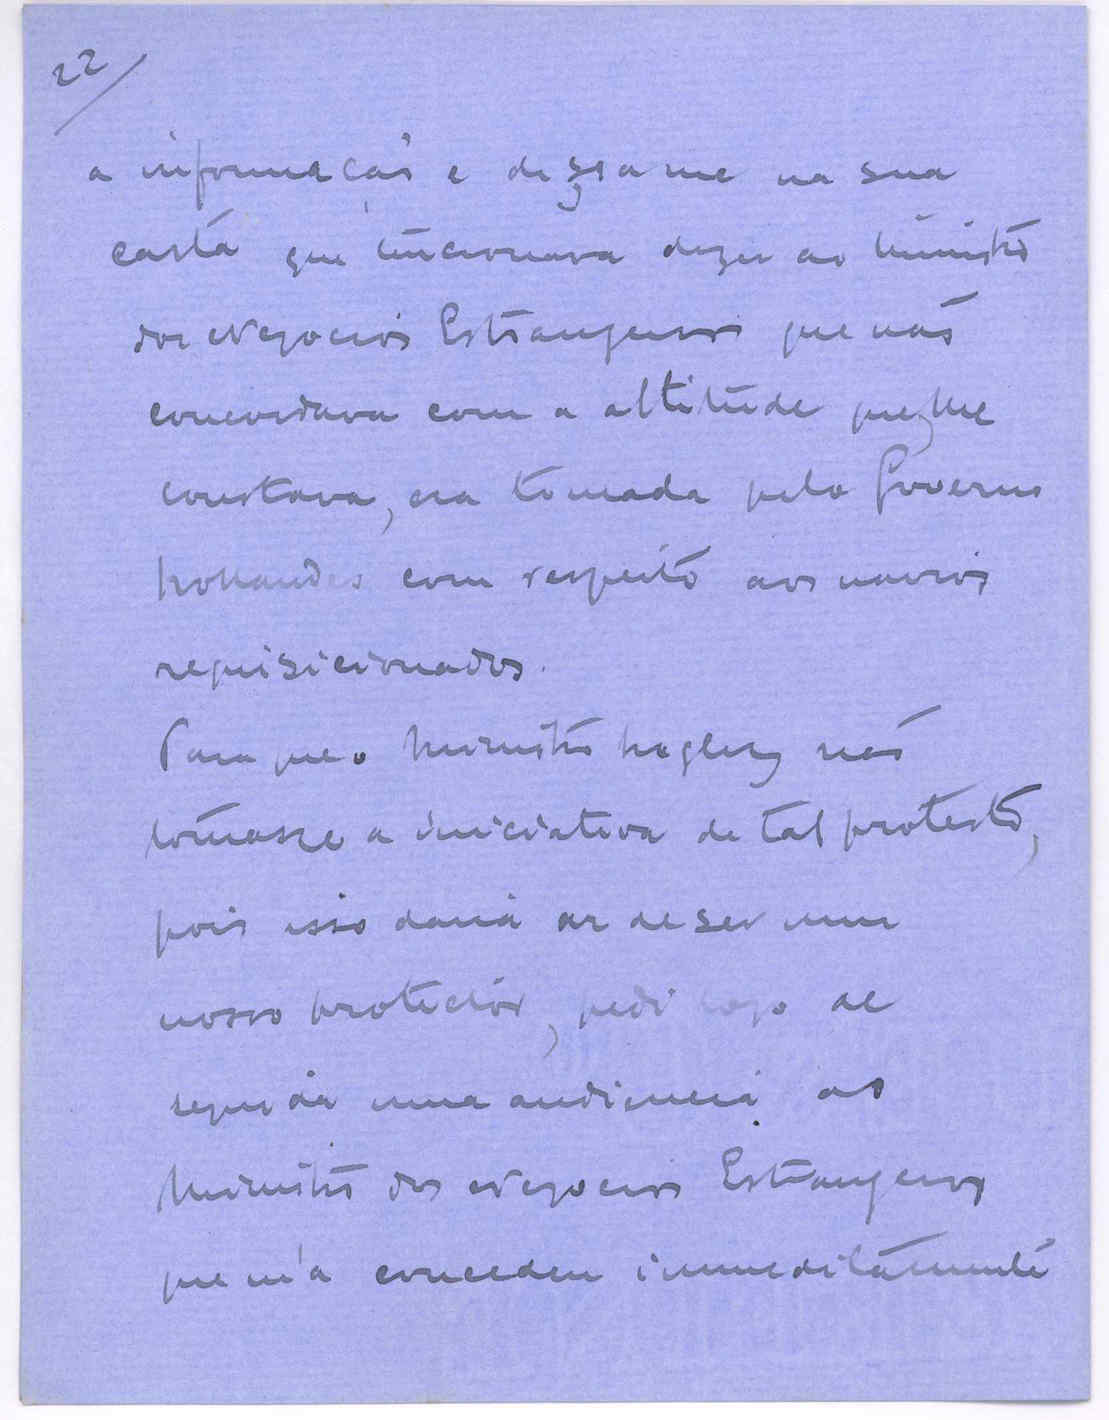 22
a informação e dizia me na sua
carta que tencionava dizer ao Ministro
dos Negocios Estrangeiros que não
concordava com a attitude que, lhe
constava, era tomada pelo Governo
hollandes com respeito aos navios
requisicionados.
Para que o Ministro Inglez não
tomasse a iniciativa de tal protesto,
pois isso daria ar de ser um
nosso protector, pedi logo de
seguida uma audiencia ao
Ministro dos Negocios Estrangeiros
que m'a concedeu immeditamente